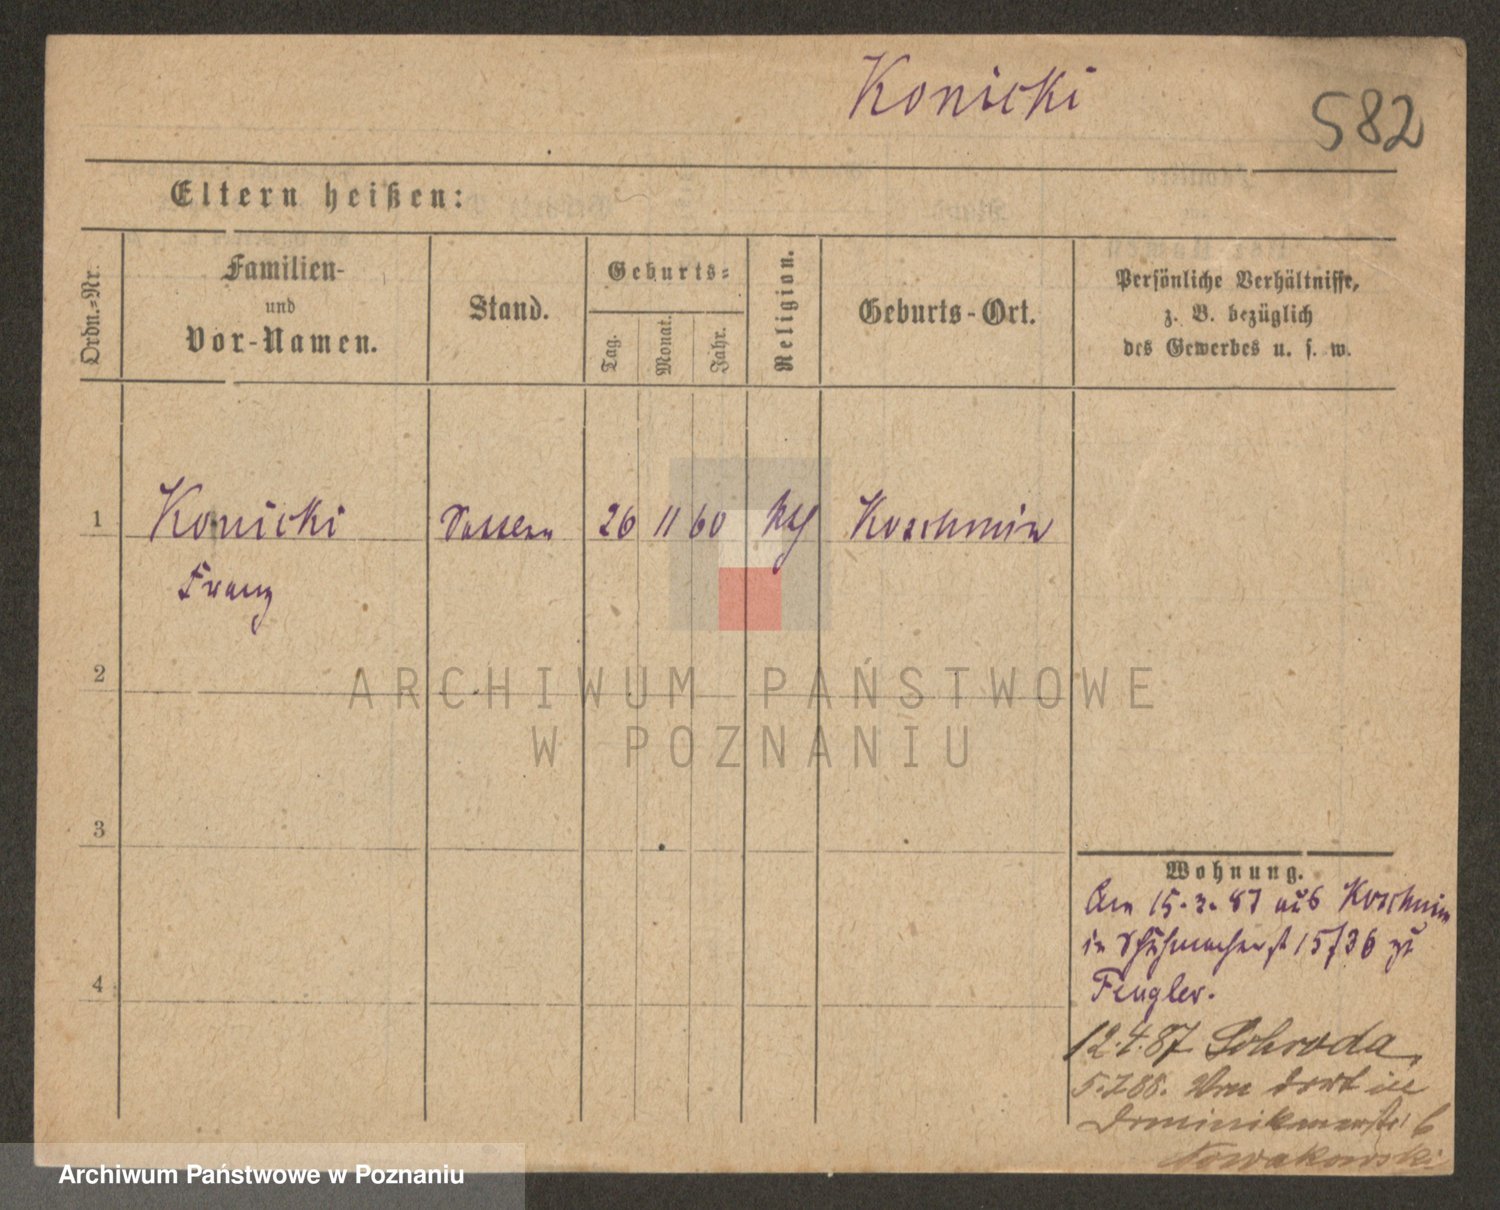 Konicki
582
Eltern heißen:
Ordn.-Nr.
Familien-
und
Vor-Namen.
Stand.
Geburts-
Tag.
Monat.
Jahr.
Religion.
Geburts-Ort.
Persönliche Verhältnisse,
z. B. bezüglich
des Gewerbes u. s. w.
1
Konicki
Franz
26
11
60
kth
Koschmin
2
3
4
ARCHIWUM PAŃSTWOWE
W POZNANIU
Wohnung.
Am 15.3.87 aus Koschmin
in Schuhmacherst 15/36 zu
Fengler.
12.4.87 Schroda
5.7.88. Von dort in
Dominikanerstr 6
Nowakowski
Archiwum Państwowe w Poznaniu